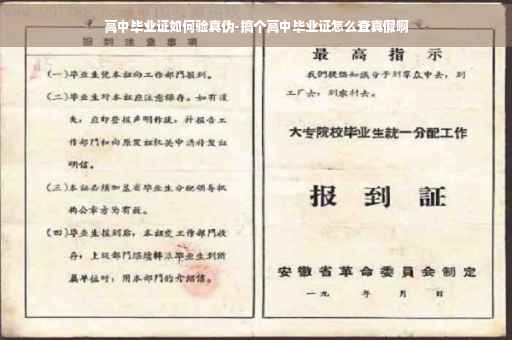 高中毕业证如何验真伪-搞个高中毕业证怎么查真假啊
报到注意事项
(一)毕业生凭本证向工作部门报到。
(二)毕业生对本证应注意保存。如有遗
失,应即登报声明作废,并报告工
作部门和向原发证机关申请补发证
明信。
(三)本证必须加盖省毕业生分配领导机
构公章方为有效。
(四)毕业生报到后,本证交工作部门收
存;上级部门
毕业生到所
属单位时,用本部门的介绍信。
最高指示
我们提倡知识分子到群众中去,到
工厂去,到农村去。
大专院校毕业生統一分配工作
报到証
安徽省革命委員会制定
一九 年 月 日